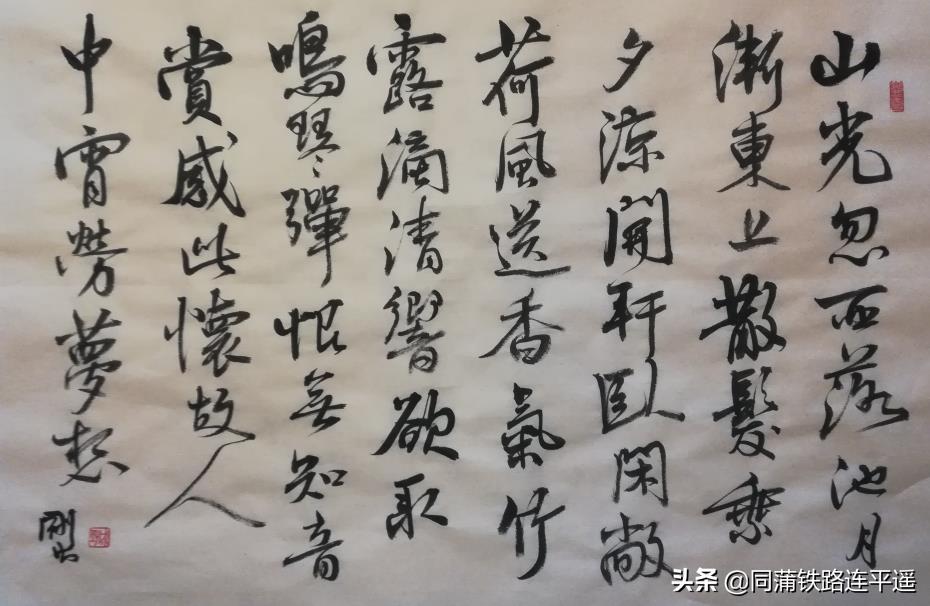 山光忽西落池月
漸東上散髮乗
夕涼開軒臥閑敞
荷風送香氣竹
露滴清響欲取
鳴琴彈恨無知音
賞感此懷故人
中宵勞夢想
头条 @同蒲铁路连平遥